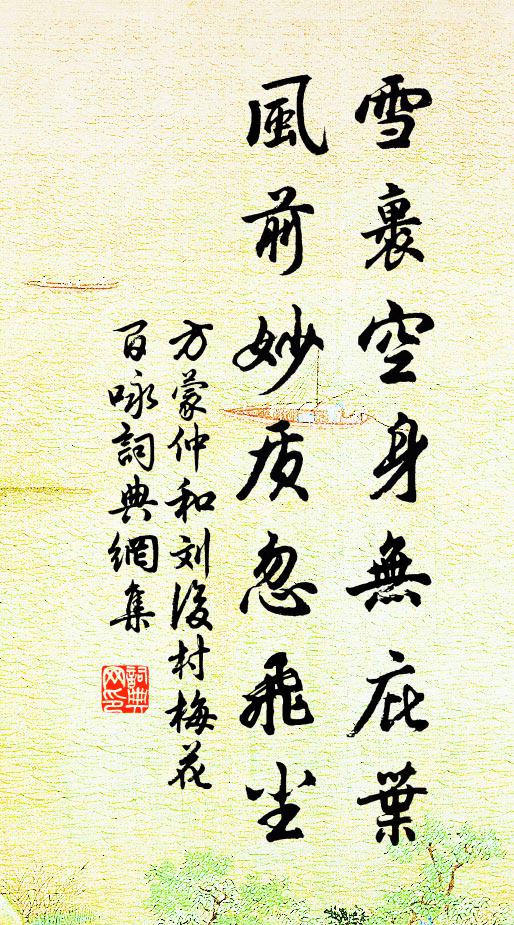 雪裏空身無庇葉
風前妙质忽飛尘
方蒙仲和刘後村梅花
百咏詞典網集
詞典網印